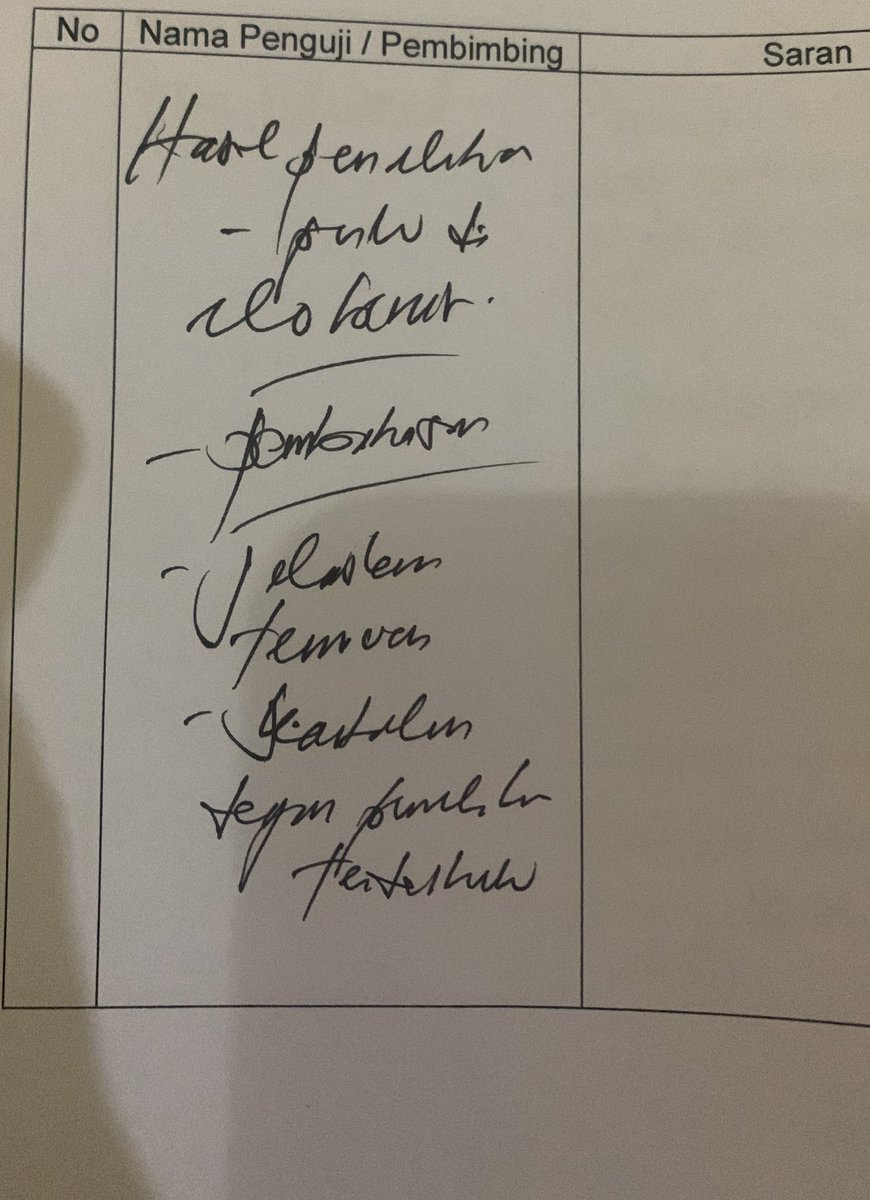 No Nama Penguji / Pembimbing Saran
Hasil penelitian
- perlu di
- pembahasan
- Jelaskan
temuan
- Kaitkan
dengan penelitian
terdahulu